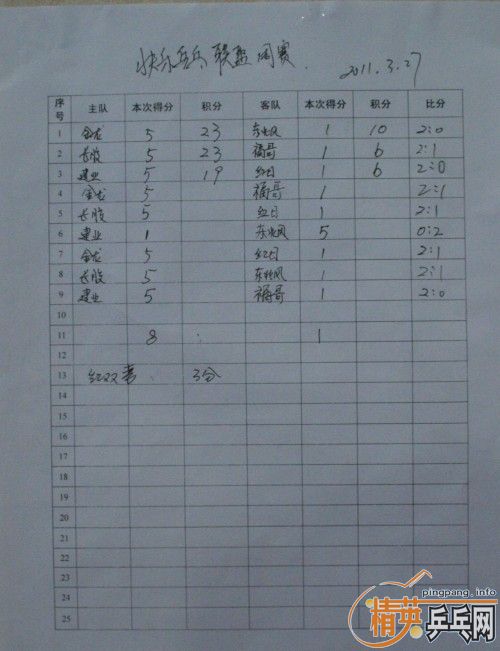 快乐乒乓联盟周赛. 2011.3.27
序号 主队 本次得分 积分 客队 本次得分 积分 比分
1 金龙 5 23 东北风 1 10 2:0
2 长胶 5 23 福哥 1 6 2:1
3 建业 5 19 红日 1 6 2:0
4 金龙 5 福哥 1 2:1
5 长胶 5 红日 1 2:1
6 建业 1 东北风 5 0:2
7 金龙 5 红日 1 2:1
8 长胶 5 东北风 1 2:1
9 建业 5 福哥 1 2:0
10
11 8 : 1
12
13 红双喜 3分
14
15
16
17
18
19
20
21
22
23
24
25
pingpang.info
精英乒乓网